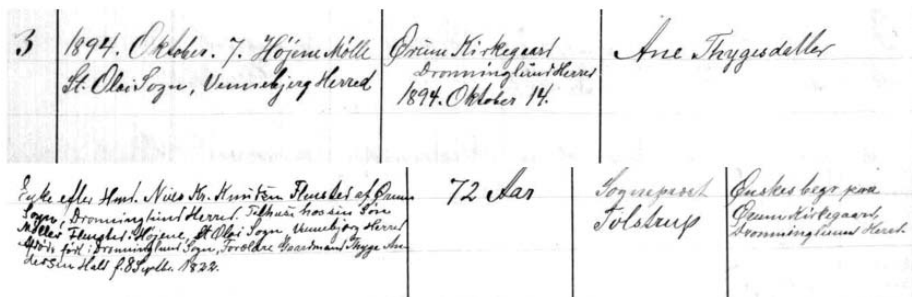 3
1894. Oktober. 7. Højene Mølle
St. Olai Sogn, Vennebjerg Herred
Ørum Kirkegaard
Dronninglund Herred
1894. Oktober 14.
Ane Thygesdatter
Enke efter Hmd. Niels Kr. Knudsen Flensted af Ørum
Sogn, Dronninglund Herred. Tilhuse hos sin Søn
Møller Flensted. Højene, St. Olai Sogn, Vennebjerg Herred
født i Dronninglund Sogn, Forældre Gaardmand Thyge An-
dersen Hals f. 8 Septbr. 1822.
72 Aar
Sognepræst
Tolstrup
Ønskes begr. paa
Ørum Kirkegaard,
Dronninglund Herred